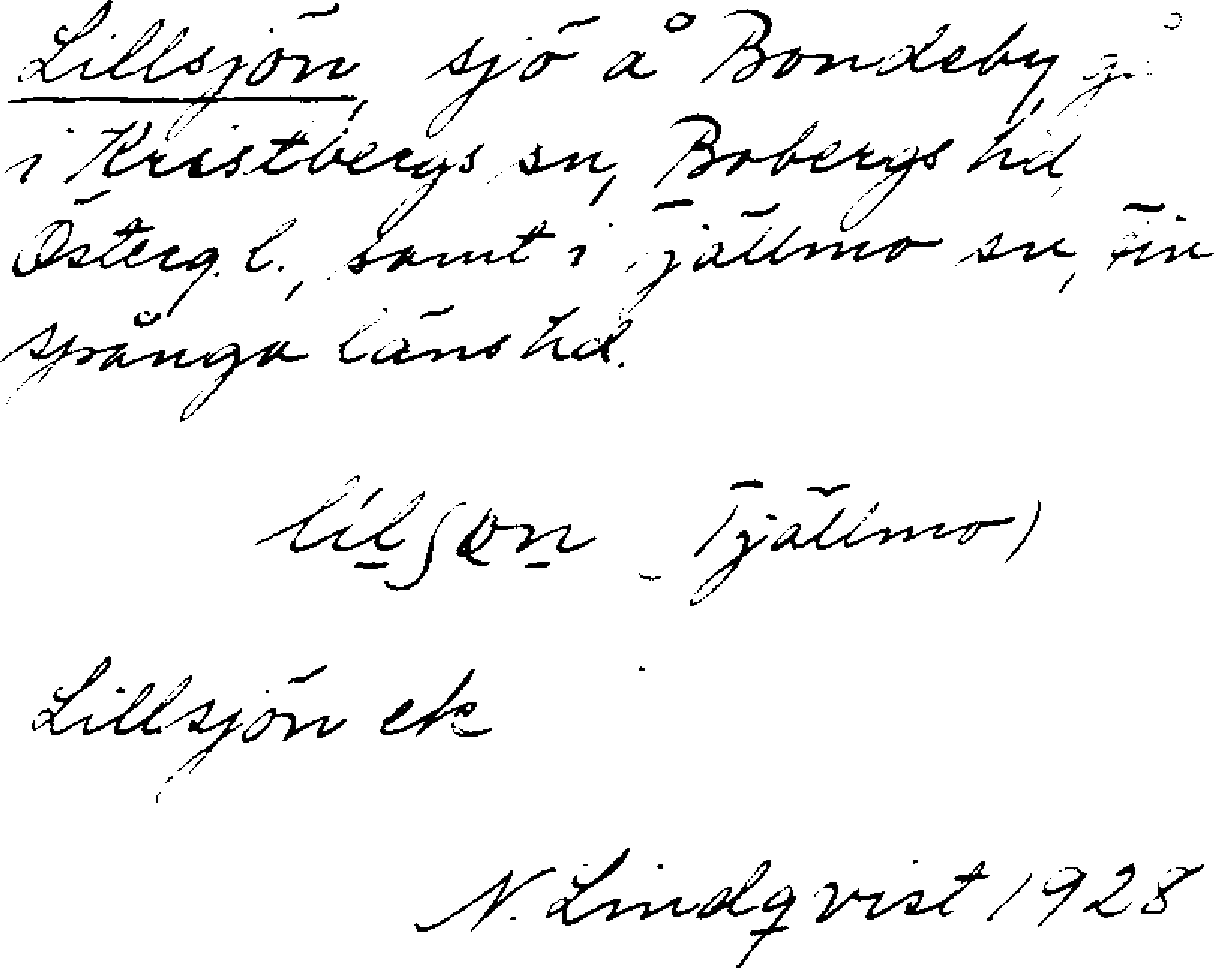 Lillsjön, sjö å Bondeby gå
i Kristbergs sn, Bobergs hd
Österg. l., samt i Tjällmo sn, Fin
spånga läns hd.
Tjällmo)
Lillsjön ek
N. Lindqvist 1928